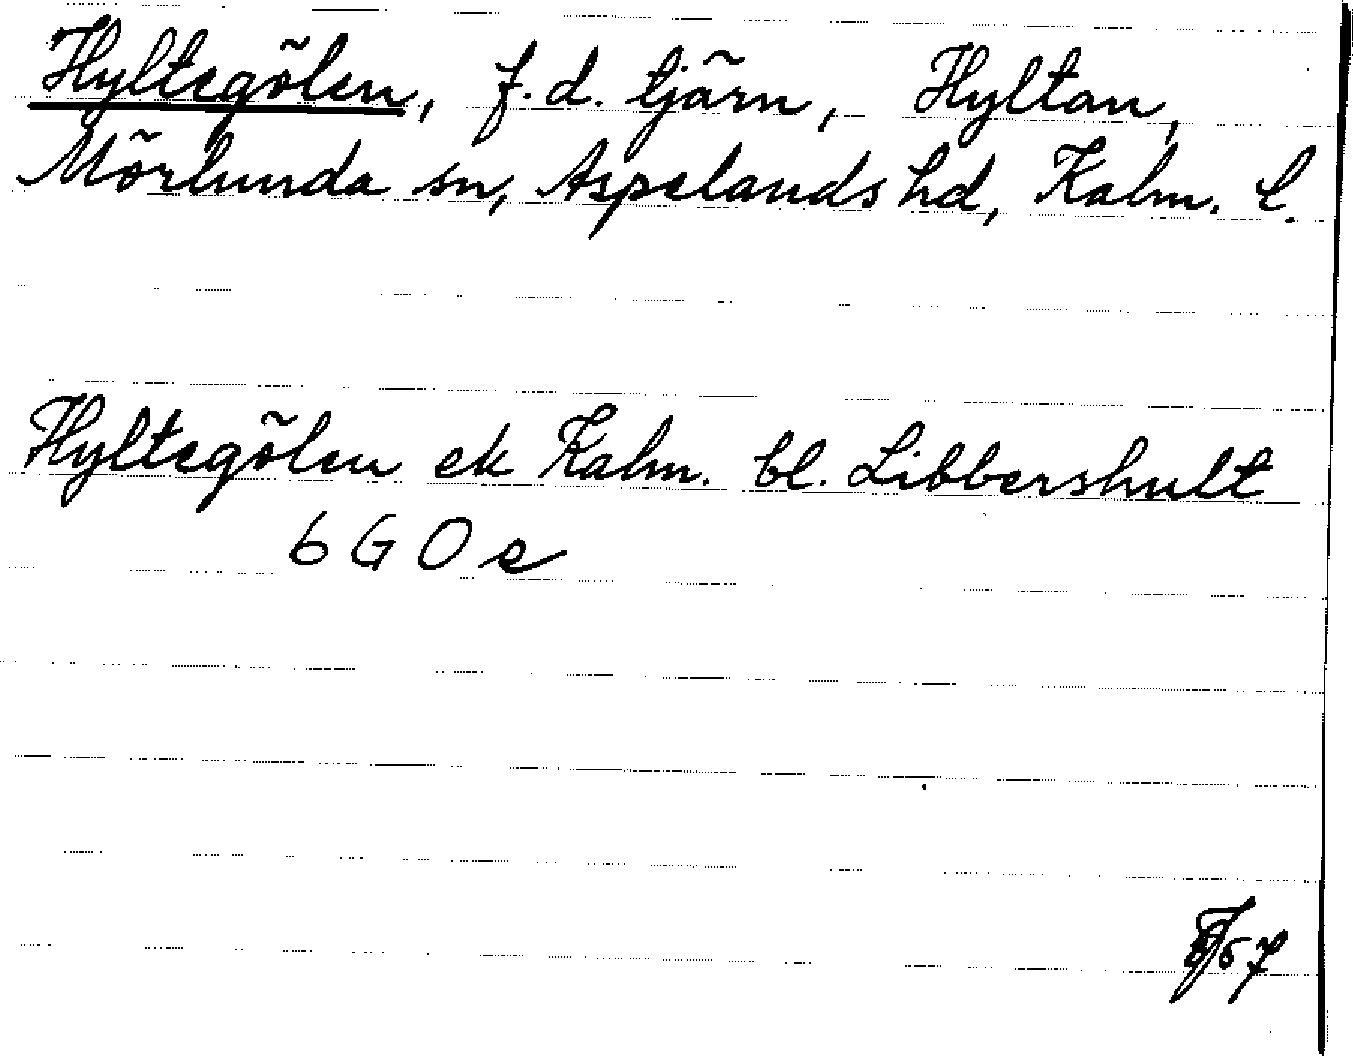 Hyltegölen, f.d. tjärn, Hyltan,
Mörlunda sn, Aspelands hd, Kalm. l.
Hyltegölen ek Kalm. bl. Libbershult
6 G O e